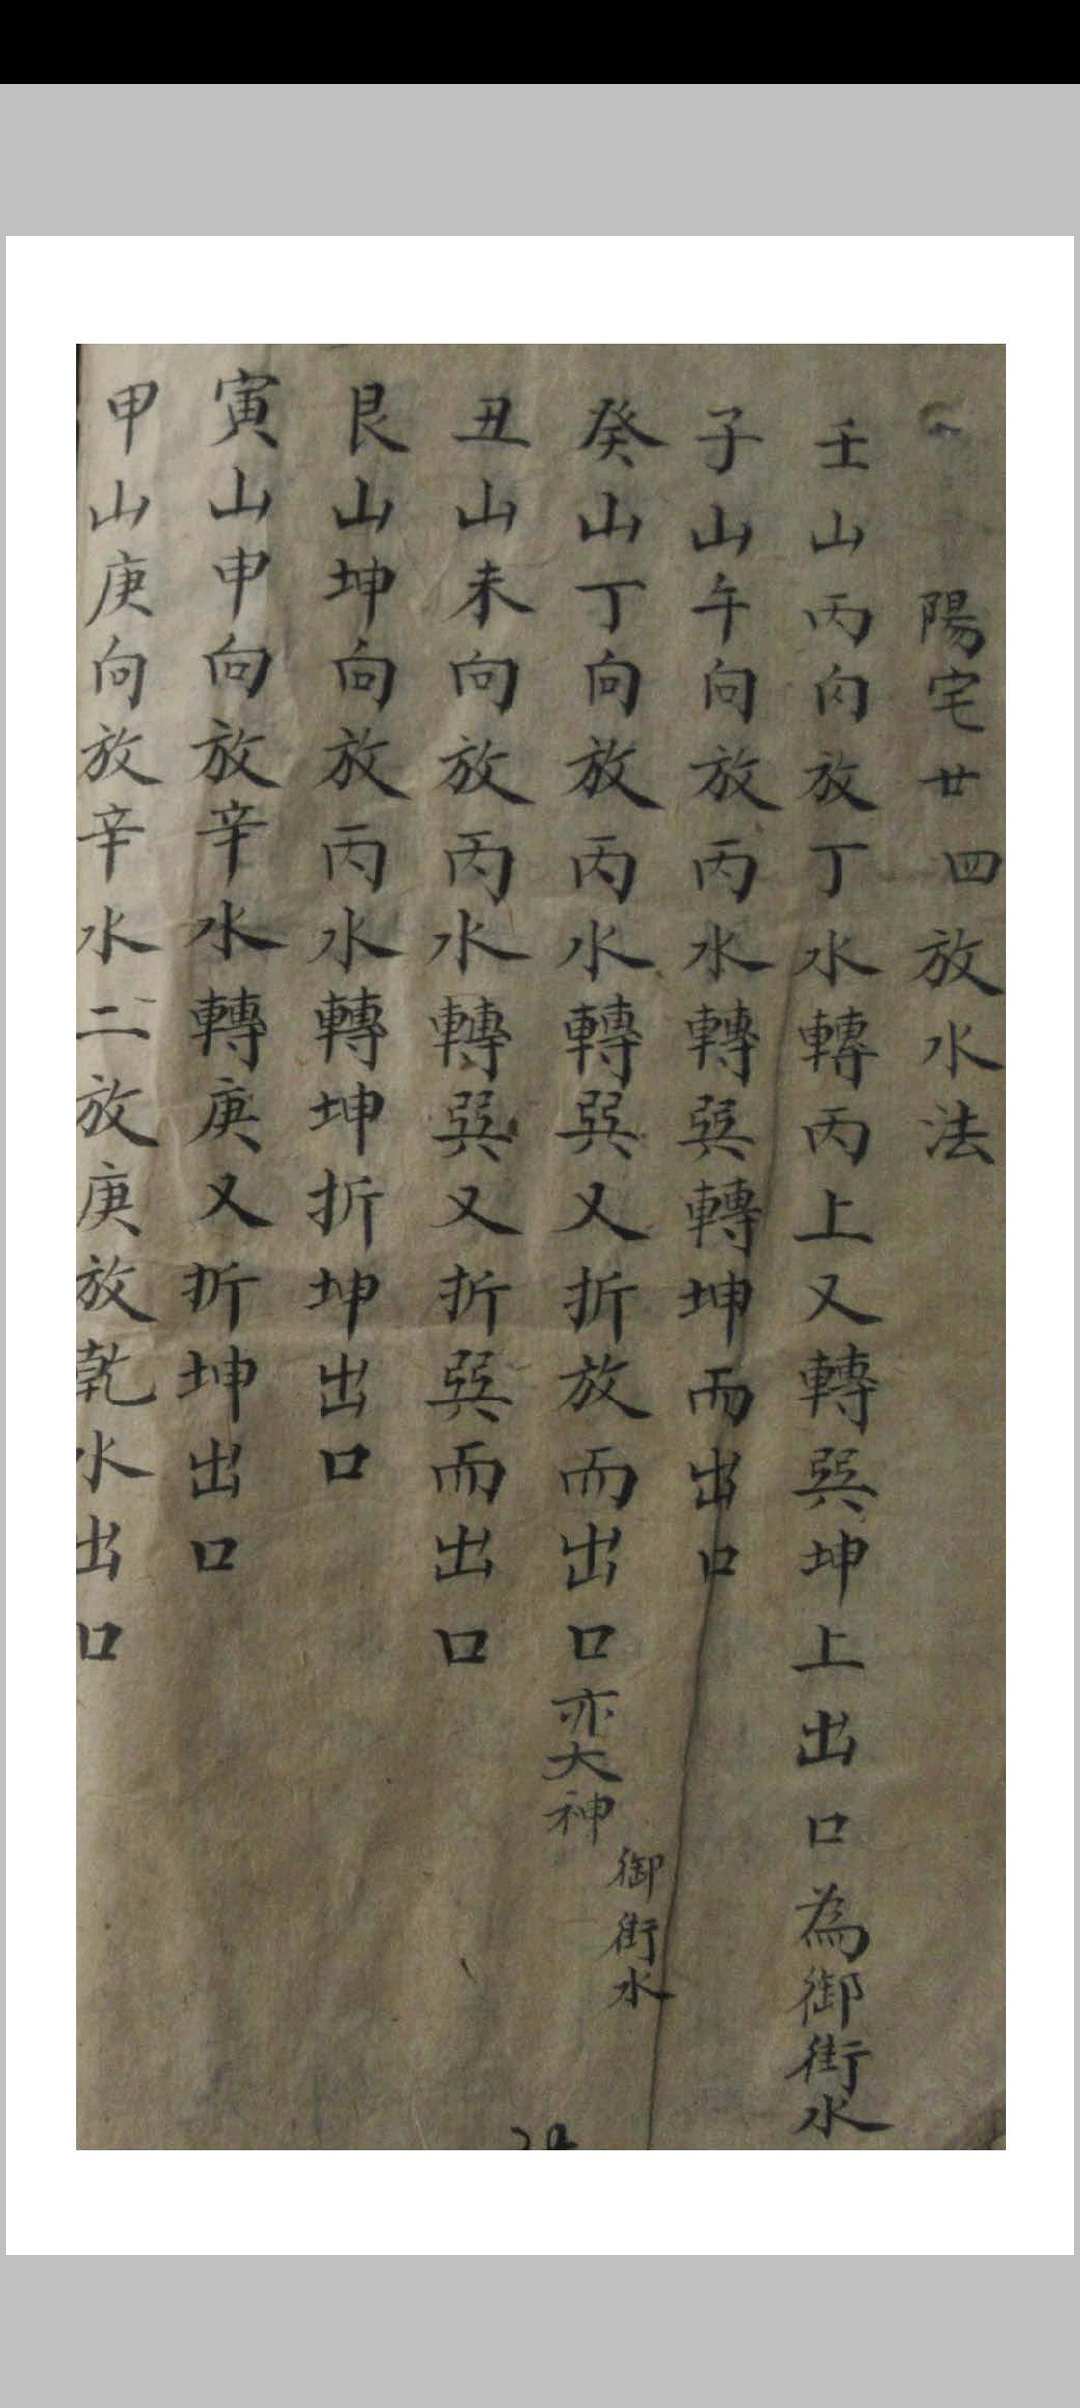 陽宅廿四放水法
壬山丙向放丁水轉丙上又轉巽坤上出口為御街水
子山午向放丙水轉巽轉坤而出口
癸山丁向放丙水轉巽又折放而出口亦大神
御街水
丑山未向放丙水轉巽又折巽而出口
艮山坤向放丙水轉坤折坤出口
寅山申向放辛水轉庚又折坤出口
甲山庚向放辛水二放庚放乾水出口